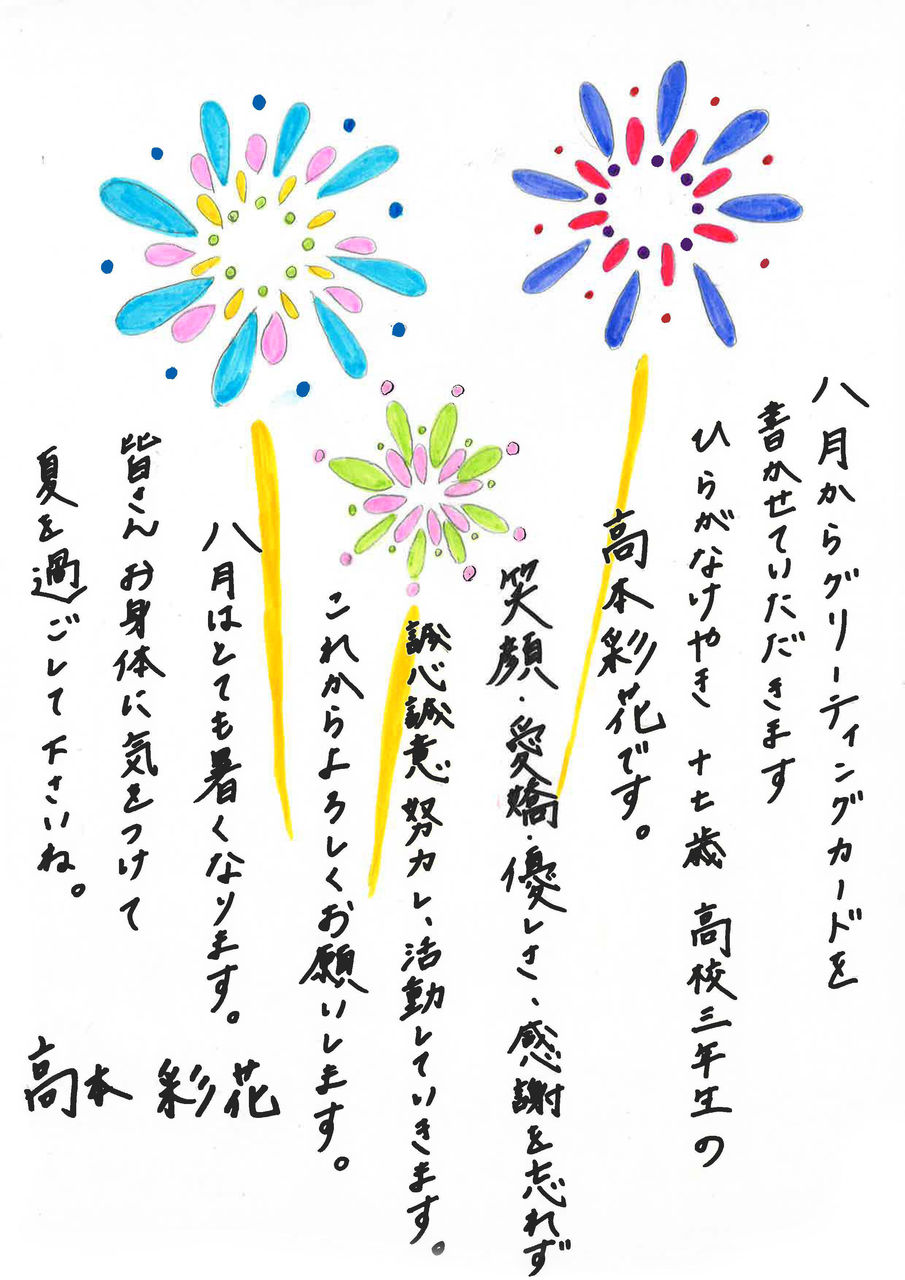 八月からグリーティングカードを
書かせていただきます
ひらがなけやき 十七歳 高校三年生の
高本彩花です。
笑顔・愛嬌・優しさ、感謝を忘れず
誠心誠意努力し、活動していきます。
これからよろしくお願いします。
八月はとても暑くなります。
皆さんお身体に気をつけて
夏を過ごして下さいね。
高本 彩花